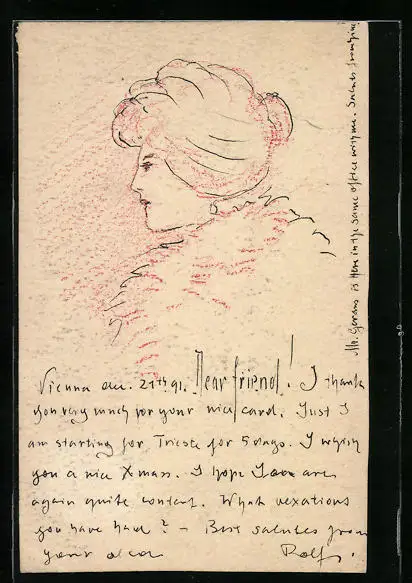 Vienna dec. 21th 91. Dear friend! I thank
you very much for your nice card. Just I
am starting for Trieste for 5 days. I wish
you a nice Xmass. I hope You are
again quite content. What vexations
you have had? – Best salutes from
your old Rolf.
Mr. Gorans is here in the same office with me. Salutes from him